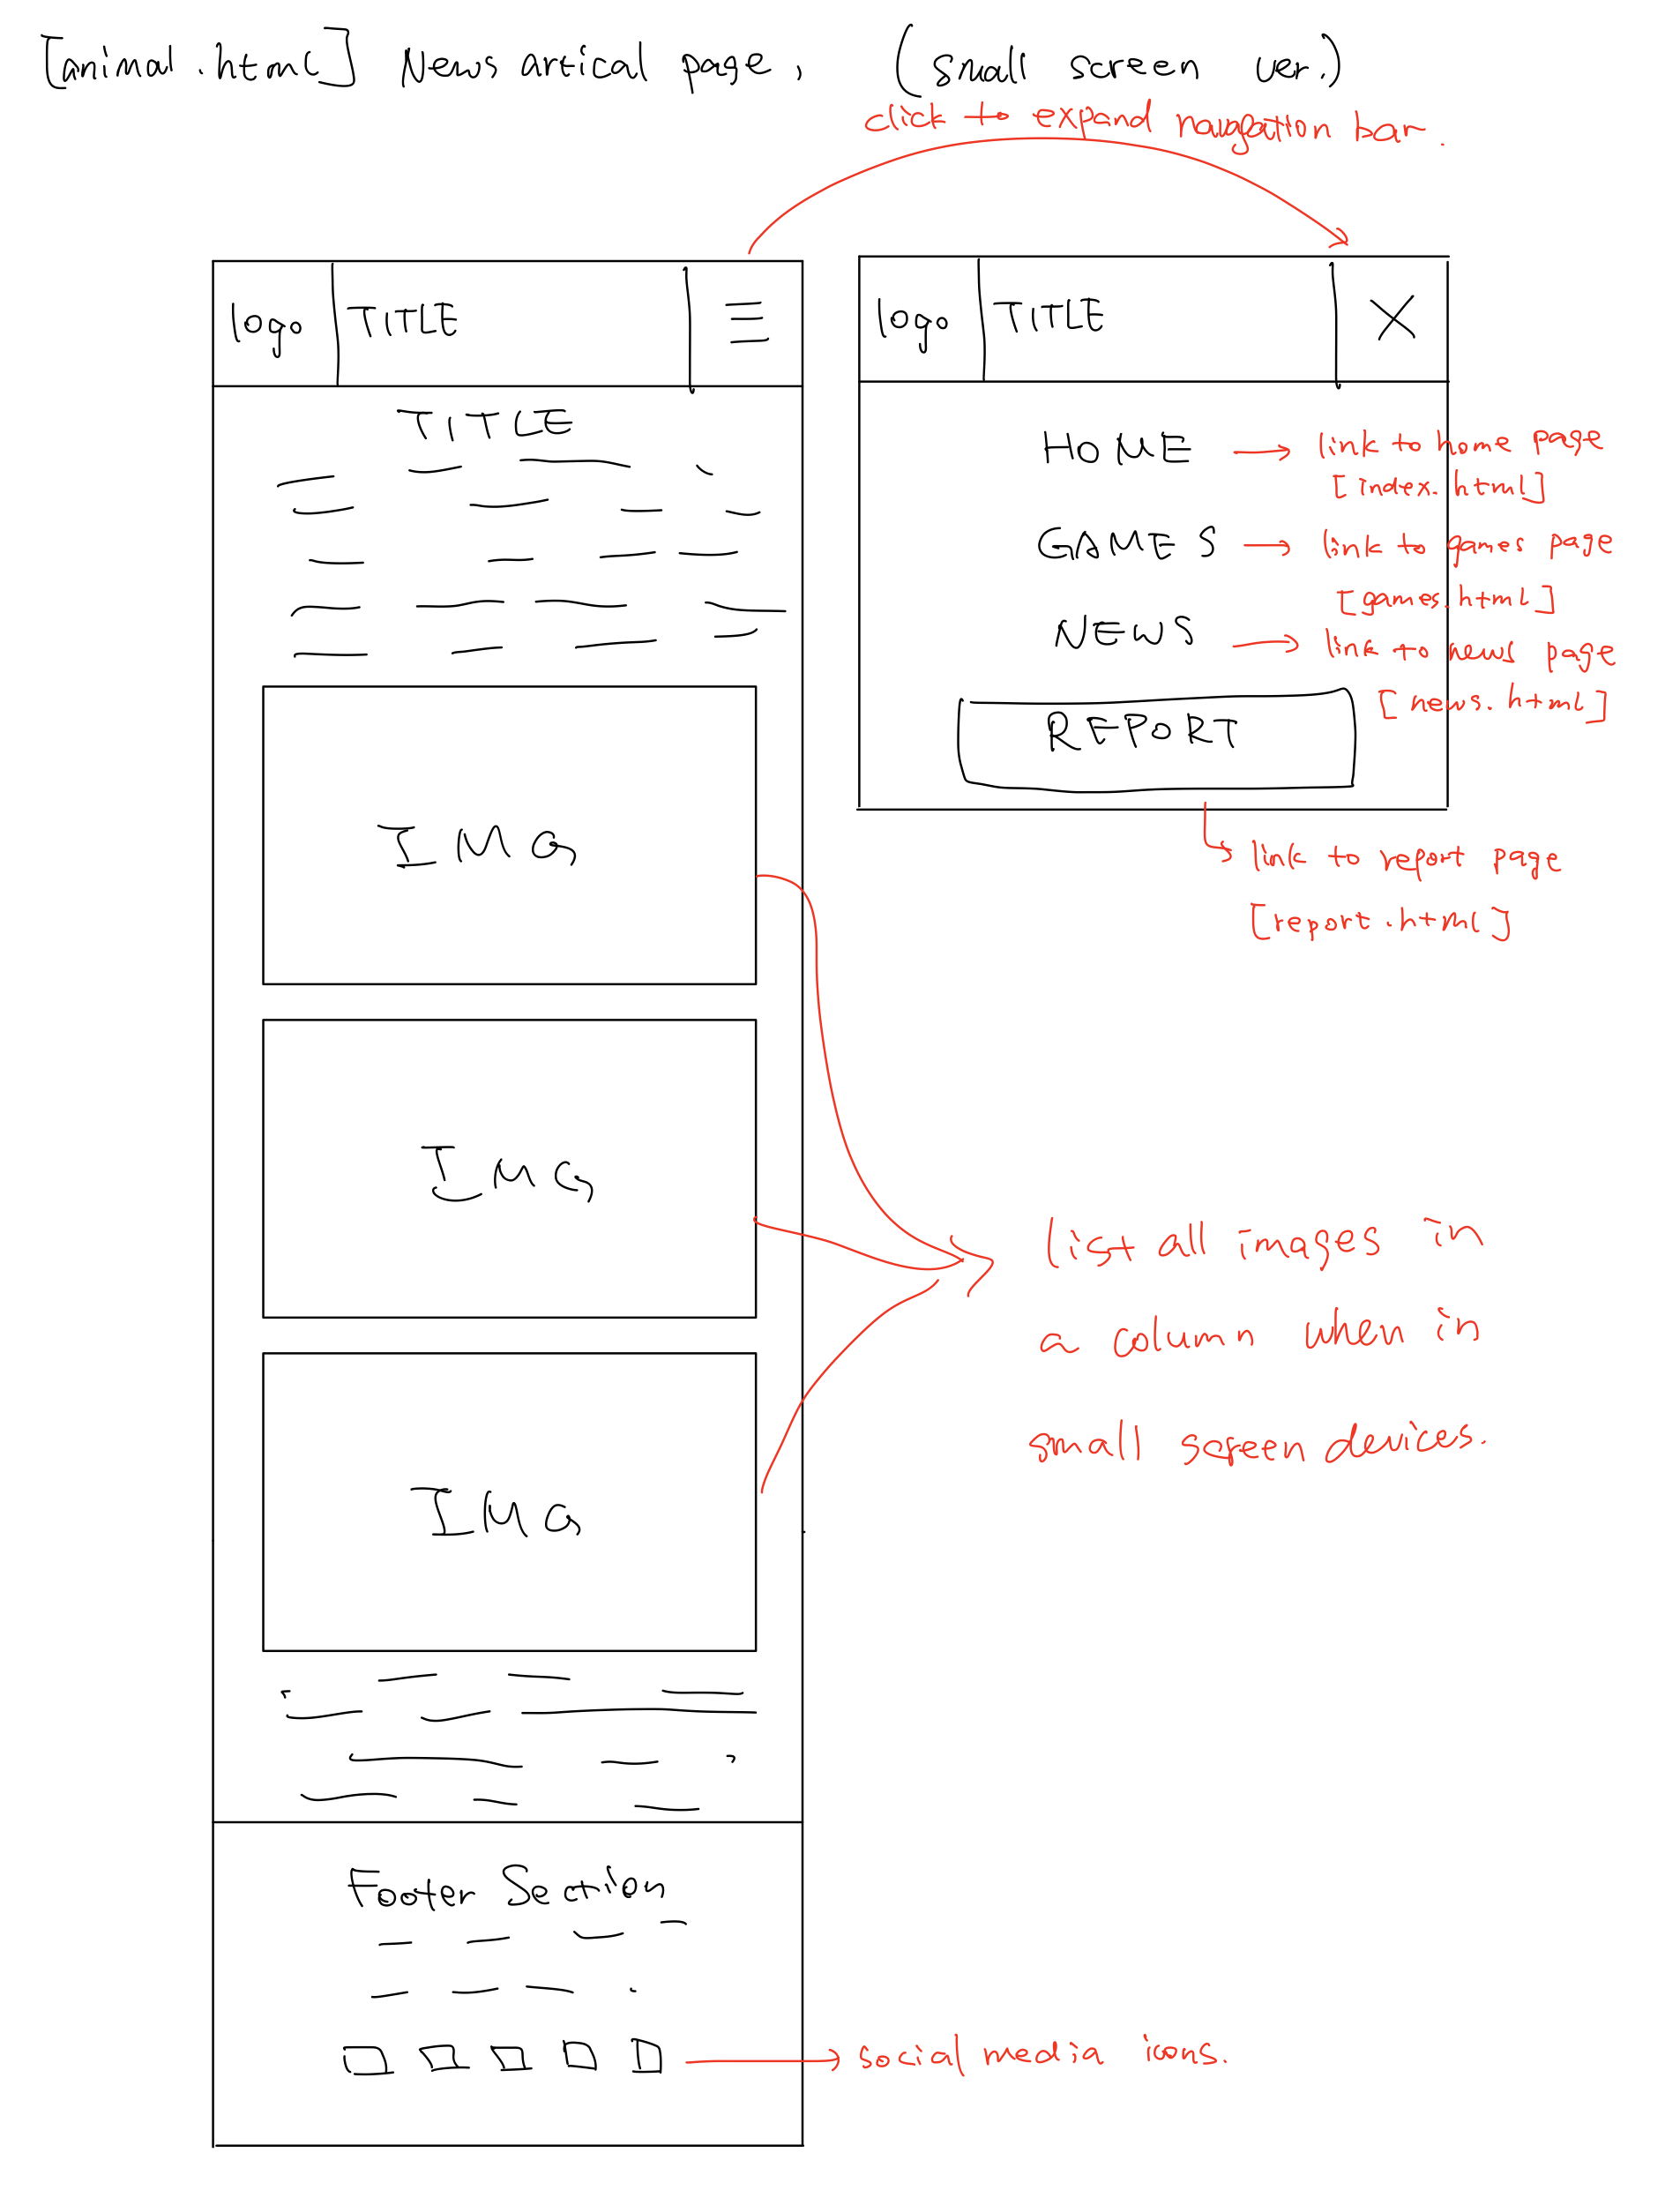 [animal.html] News artical page, (small screen ver.)
click to expand navagation bar.
logo TITLE
TITLE
IMG
IMG
IMG
Footer Section
logo TITLE X
HOME → link to home page
[index.html]
GAMES → link to games page
[games.html]
NEWS → link to news page
[news.html]
REPORT
link to report page
[report.html]
list all images in
a column when in
small screen devices.
social media icons.